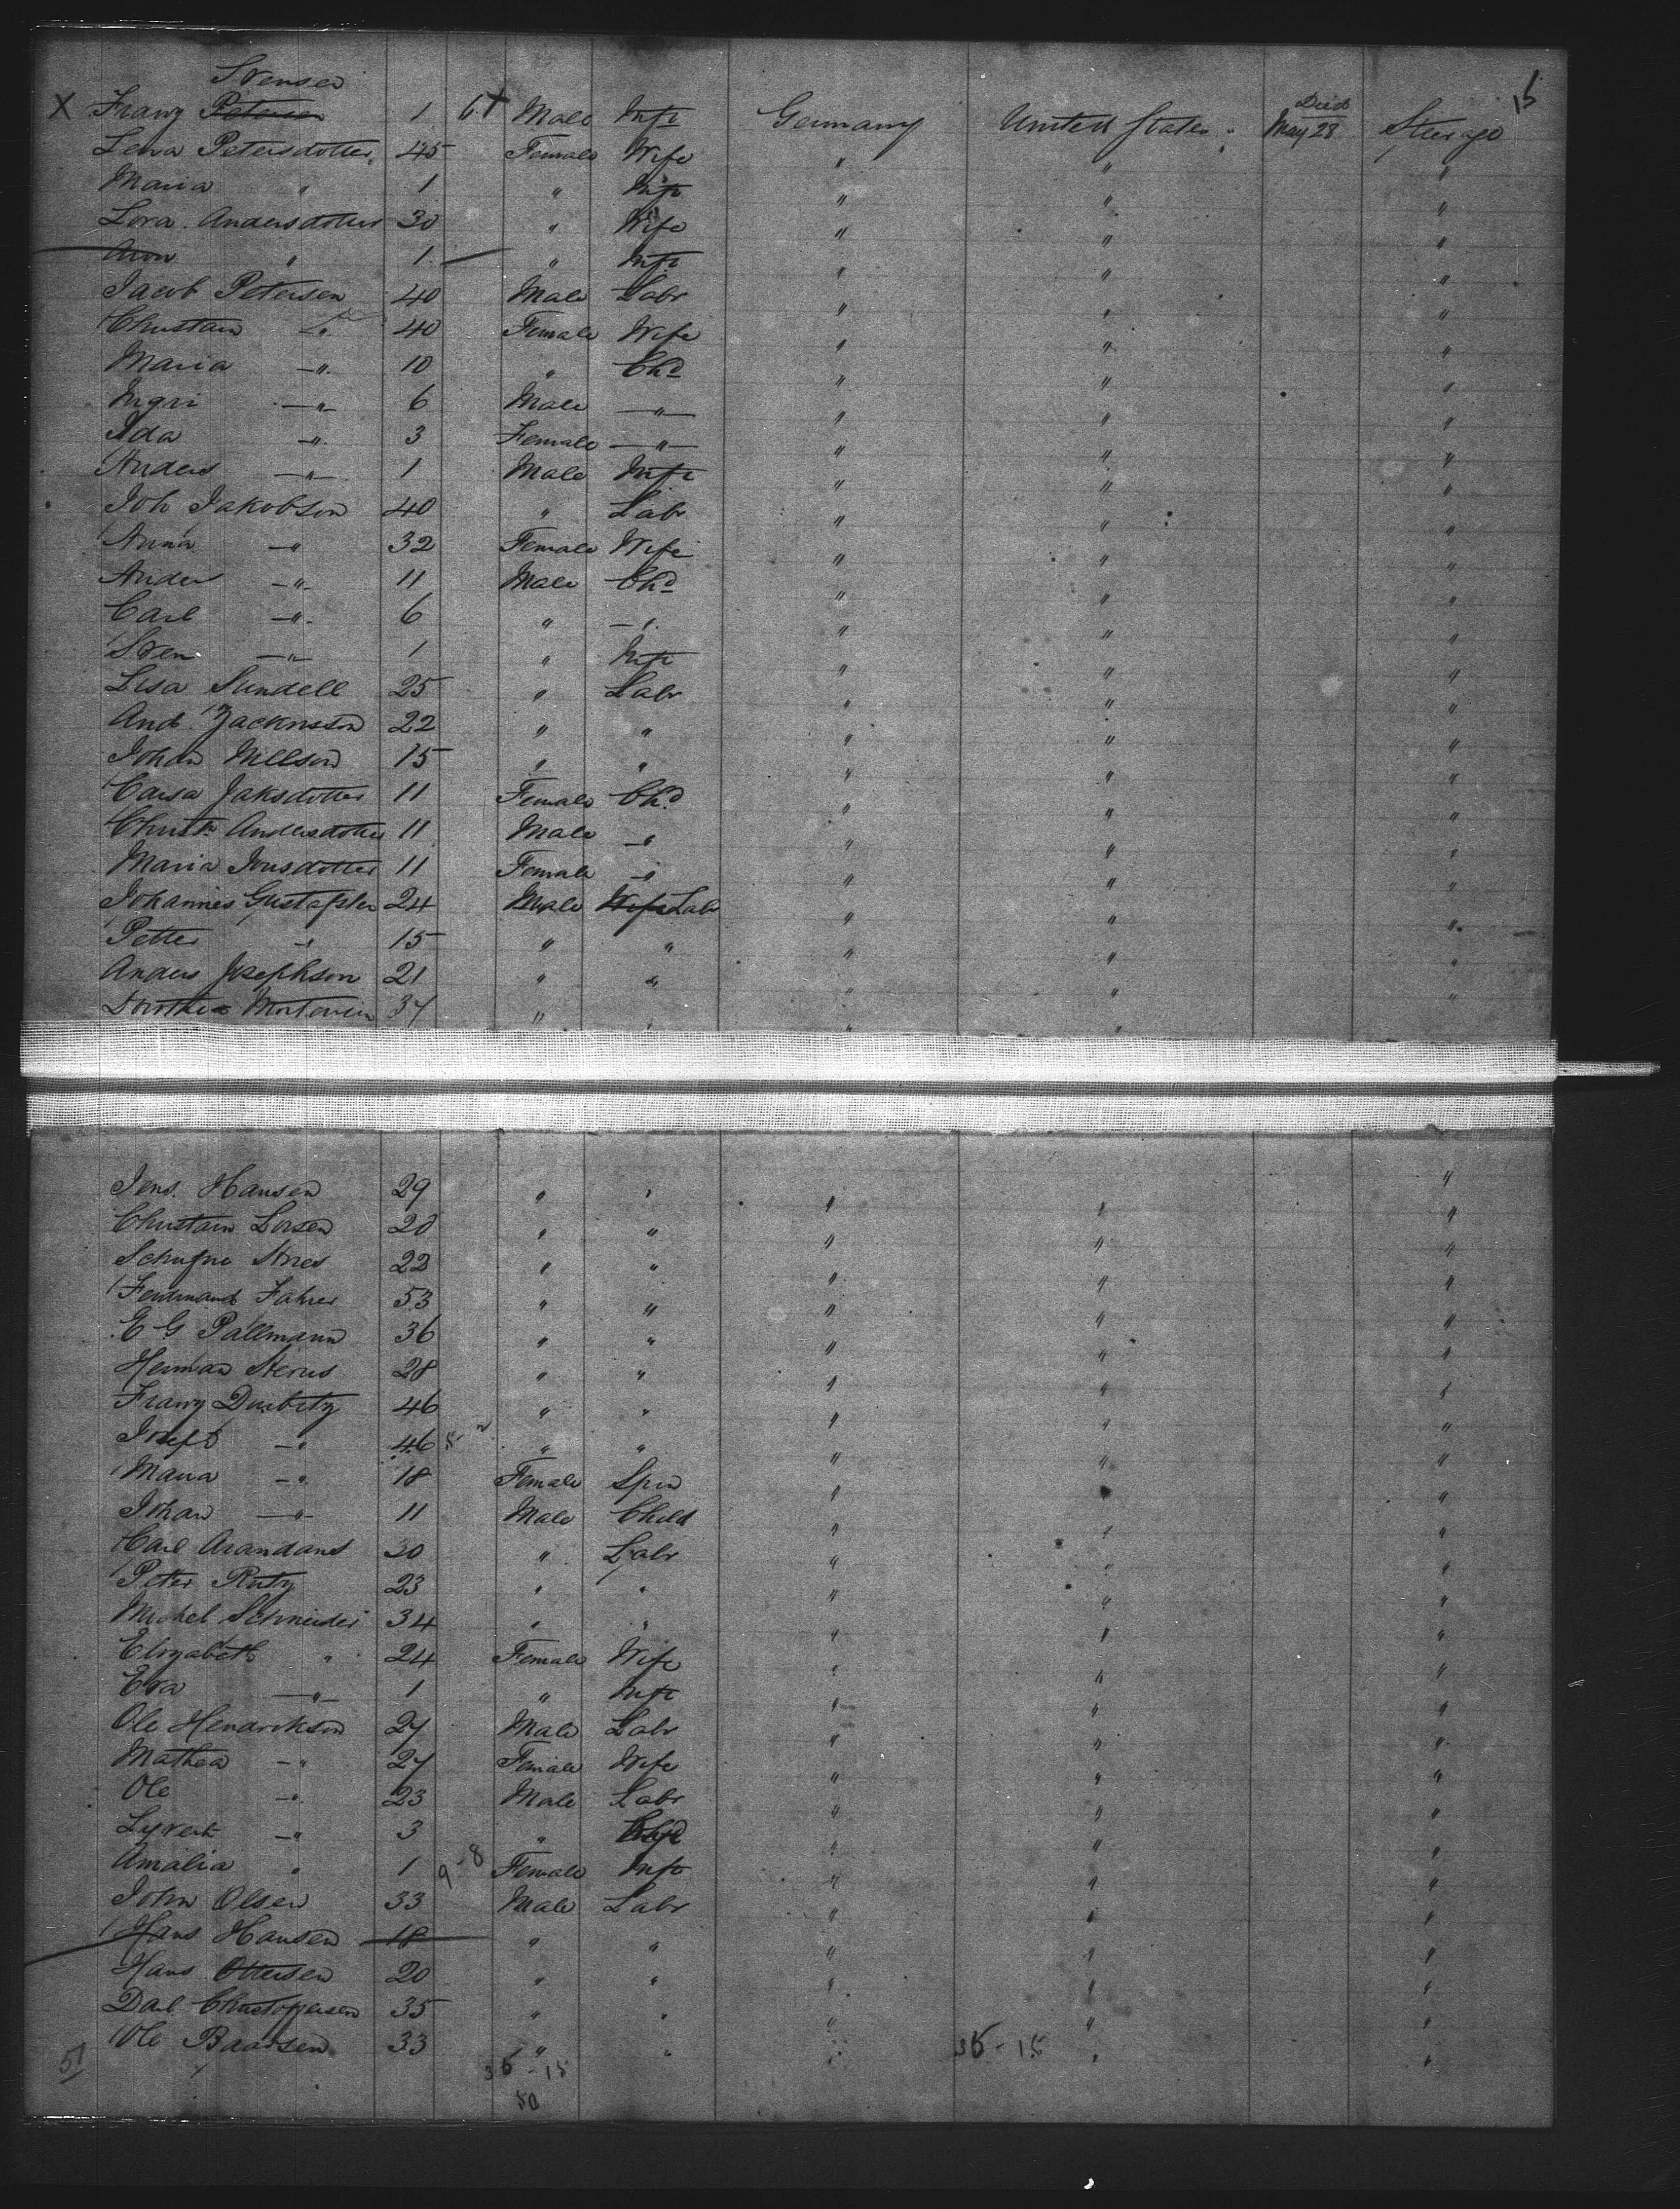 15
Svensen
X Franz Petersen 1 6+ Male Inft Germany United States Died May 23 Steerage
Lena Petersdotter 45 Female Wife " " "
Maria " 1 " Inft " " "
Lova Andersdotter 30 " Wife " " "
Aron " 1 " Inft " " "
Jacob Petersen 40 Male Labr " " "
Christain " 40 Female Wife " " "
Maria " 10 " Chd " " "
Ingri " 6 Male " " " "
Ida " 3 Female " " " "
Anders " 1 Male Inft " " "
Joh Jakobson 40 " Labr " " "
Anna " 32 Female Wife " " "
Ander " 11 Male Chd " " "
Carl " 6 " " " " "
Sven " 1 " Inft " " "
Lisa Sundell 25 " Labr " " "
And. Zackrisson 22 " " " " "
Johan Nillson 15 " " " " "
Caisa Jaksdotter 11 Female Chd " " "
Christn Andersdotter 11 Male " " " "
Maria Jonsdotter 11 Female " " " "
Johannes Gustafson 24 Male Wife Labr " " "
Petter " 15 " " " " "
Anders Josephson 21 " " " " "
Dorothea 37 " " " "
Jens Hansen 29 " " " " "
Christain Lorsen 20 " " " " "
22 " " " " "
Ferdinand Fahrer 53 " " " " "
E G Pallmann 36 " " " " "
Herman 28 " " " " "
Franz 46 " " " " "
Josef " 46 " " " " "
Maria " 18 Female Spin " " "
Johan " 11 Male Child " " "
Carl Arandand 30 " Labr " " "
Peter Rutz 23 " " " " "
Michel Schneider 34 " " " " "
Elizabeth " 24 Female Wife " " "
Eva " 1 " Inft " " "
Ole Hendrikson 27 Male Labr " " "
Mathea " 27 Female Wife " " "
Ole " 23 Male Labr " " "
" 3 " " " "
Amalia " 1 9-8 Female Inft " " "
John Olsen 33 Male Labr " " "
Hans Hansen 18 " " " " "
Hans Ottersen 20 " " " " "
Christoffersen 35 " " " " "
Ole Baarsen 33 " " " " "
51 36-15 36-15
50